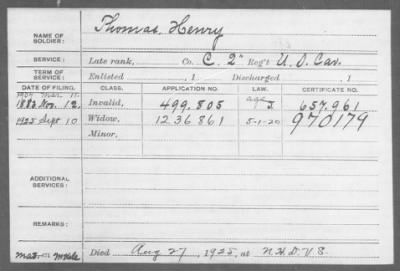 NAME OF SOLDIER: Thomas, Henry
SERVICE: Late rank, Co. C. 2" Reg't U. S. Cav.
TERM OF SERVICE: Enlisted , 1 Discharged , 1
DATE OF FILING. CLASS. APPLICATION NO. LAW. CERTIFICATE NO.
1883 Nov. 12. Invalid, 499.805 J. 657.961
1925 Sept 10 Widow, 1236861 5-1-20 970179
Minor,
ADDITIONAL SERVICES:
REMARKS:
Died Aug 27, 1925, at N.H.D.V.S.